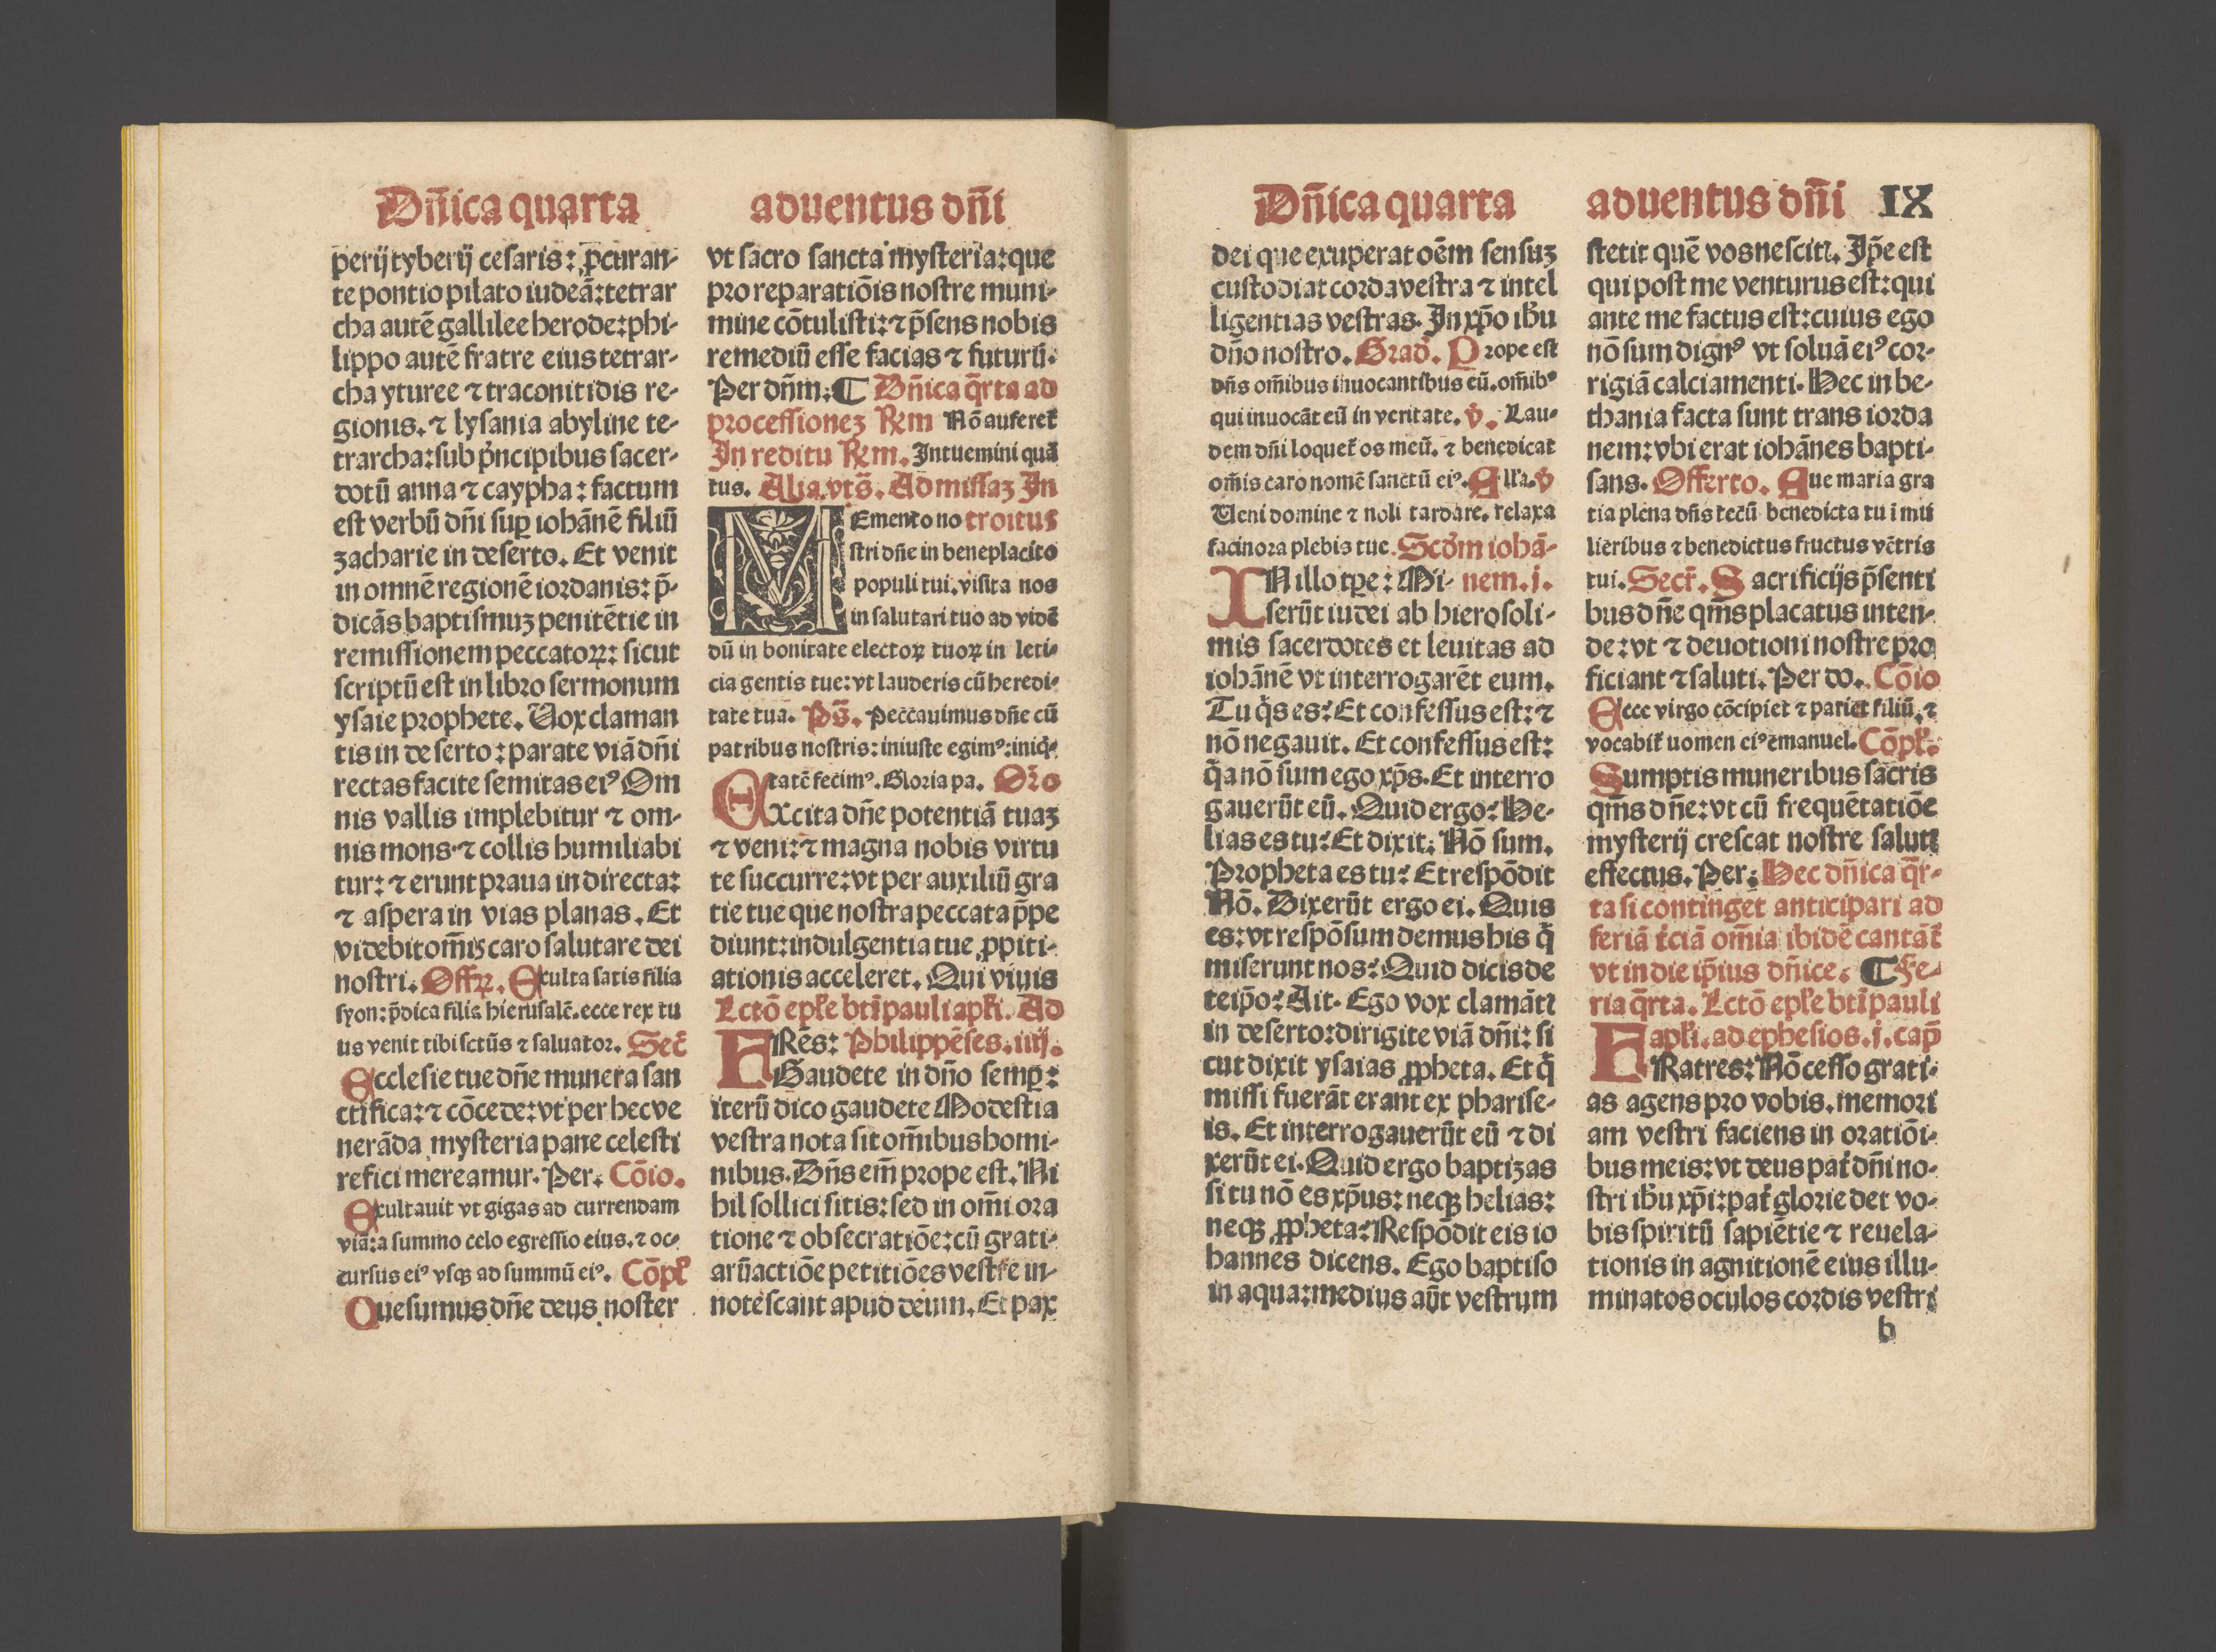 Dn̄ica quarta
perij tyberij cesaris: ꝓcuran-
te pontio pilato iudeā: tetrar
cha autē gallilee herode: phi-
lippo autē fratre eius tetrar-
cha yturee ⁊ traconitidis re-
gionis. ⁊ lysania abyline te-
trarcha: sub p̓ncipibus sacer-
dotū anna ⁊ caypha: factum
est verbū dn̄i suꝑ iohānē filiū
zacharie in deserto. Et venit
in omnē regionē iordanis: p̄-
dicās baptismuz penitētie in
remissionem peccatoꝝ: sicut
scriptū est in libro sermonum
ysaie prophete. Vox claman
tis in deserto: parate viā dn̄i
rectas facite semitas eiꝰ Om
nis vallis implebitur ⁊ om-
nis mons ⁊ collis humiliabi
tur: ⁊ erunt praua in directa:
⁊ aspera in vias planas. Et
videbit om̄is caro salutare dei
nostri. Offꝝ. Exulta satis filia
syon: p̄dica filia hierusalē. ecce rex tu
us venit tibi sctūs ⁊ saluator. Secr̄
Ecclesie tue dn̄e munera san
ctifica: ⁊ cōcede: vt per hec ve
nerāda mysteria pane celesti
refici mereamur. Per. Cōio.
Exultauit vt gigas ad currendam
viā: a summo celo egressio eius. ⁊ oc-
cursus eiꝰ vsqꝫ ad summū eiꝰ. Cōpl̄
Quesumus dn̄e deus noster
aduentus dn̄i
vt sacro sancta mysteria: que
pro reparatiōis nostre muni-
mine cōtulisti: ⁊ p̄sens nobis
remediū esse facias ⁊ futurū.
Per dn̄m: ¶ Dn̄ica q̄rta ad
processionez ℞m Nō auferet̄
In reditu ℞m. Intuemini quā
tus. Alia. vt s̄. Ad missaz In
Memento no troitus
stri dn̄e in beneplacito
populi tui. visita nos
in salutari tuo ad vidē
dū in bonitate electoꝝ tuoꝝ in leti-
cia gentis tue: vt lauderis cū heredi-
tate tua. Ps̄. Peccauimus dn̄e cū
patribus nostris: iniuste egimꝰ: iniq̄-
tatē fecimꝰ. Gloria pa. Or̄o
EXcita dn̄e potentiā tuaz
⁊ veni: ⁊ magna nobis virtu
te succurre: vt per auxiliū gra
tie tue que nostra peccata p̄pe
diunt: indulgentia tue ꝓpiti-
ationis acceleret. Qui viuis
Lctō epl̄e bt̄i pauli apl̄i. Ad
FRēs: Philippēses. iiij.
Gaudete in dn̄o semꝑ:
iterū dico gaudete Modestia
vestra nota sit om̄ibus homi-
nibus. Dn̄s em̄ prope est. Ni
hil sollici sitis: sed in om̄i ora
tione ⁊ obsecratiōe: cū grati-
arū actiōe petitiōes vestre in-
notescant apud deum. Et pax
Dn̄ica quarta
dei que exuperat oēm sensuz
custodiat corda vestra ⁊ intel
ligentias vestras. In xp̄o ihu̓
dn̄o nostro. Grad̓. Prope est
dn̄s om̄ibus inuocantibus eū. om̄ibꝰ
qui inuocāt eū in veritate. ℣. Lau-
dem dn̄i loquet̄ os meū. ⁊ benedicat
om̄is caro nomē sanctū eiꝰ. Alla. ℣
Veni domine ⁊ noli tardare. relaxa
facinora plebis tue. Scd̓m iohā-
IN illo tp̄e: Mi- nem. j.
serūt iudei ab hierosoli-
mis sacerdotes et leuitas ad
iohānē vt interrogarēt eum.
Tu q̓s es? Et confessus est: ⁊
nō negauit. Et confessus est:
q̓a nō sum ego xp̄s. Et interro
gauerūt eū. Quid ergo? He-
lias es tu? Et dixit: Nō sum.
Propheta es tu? Et respōdit
Nō. Dixerūt ergo ei. Quis
es: vt respōsum demus his q̓
miserunt nos? Quid dicis de
teip̄o? Ait. Ego vox clamātꝭ
in deserto: dirigite viā dn̄i: si
cut dixit ysaias ꝓpheta. Et q̓
missi fuerāt erant ex pharise-
is. Et interrogauerūt eū ⁊ di
xerūt ei. Quid ergo baptizas
si tu nō es xp̄us: neqꝫ helias:
neqꝫ ꝓpheta? Respōdit eis io
hannes dicens. Ego baptiso
in aqua: medius aūt vestrum
aduentus dn̄i IX
stetit quē vos nescitꝭ. Ip̄e est
qui post me venturus est: qui
ante me factus est: cuius ego
nō sum dignꝰ vt soluā eiꝰ cor-
rigiā calciamenti. Hec in be-
thania facta sunt trans iorda
nem: vbi erat iohānes bapti-
sans. Offerto. Aue maria gra
tia plena dn̄s tecū benedicta tu ī mu
lieribus ⁊ benedictus fructus vētris
tui. Secr̄. Sacrificijs p̄senti
bus dn̄e qm̄s placatus inten-
de: vt ⁊ deuotioni nostre pro
ficiant ⁊ saluti. Per do. Cōio
Ecce virgo cōcipiet ⁊ pariet filiū. ⁊
vocabit̄ uomen eiꝰ emanuel. Cōpl̄.
Sumptis muneribus sacris
qm̄s dn̄e: vt cū frequētatiōe
mysterij crescat nostre salutꝭ
effectus. Per: Hec dn̄ica q̄r-
ta si continget anticipari ad
feriā t̓ciā om̄ia ibidē cantāt̄
vt in die ip̄ius dn̄ice. ¶ Fe-
ria q̄rta. Lctō epl̄e bt̄i pauli
apl̄i. ad ephesios. j. cap̄
FRatres: Nō cesso grati-
as agens pro vobis. memori
am vestri faciens in oratiōi-
bus meis: vt deus pat̄ dn̄i no-
stri ihu̓ xp̄i: pat̄ glorie det vo-
bis spiritū sapiētie ⁊ reuela-
tionis in agnitionē eius illu-
minatos oculos cordis vestri
b